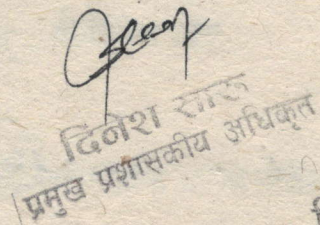 दिनेश सारू
प्रमुख प्रशासकीय अधिकृत